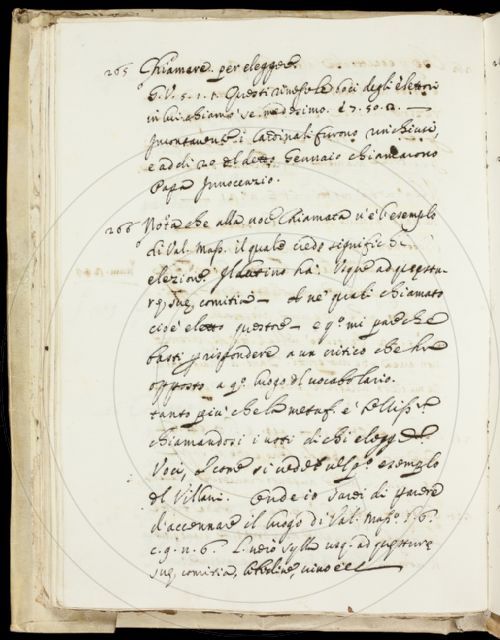 265 Chiamare. per eleggere.
G. V. 5. 1. 1. Questi rivesò le boci degli elettori
in lui chiamò se medesimo. e 7. 50. 2. —
i Cardinali furono rinchiusi,
e addi 20 del detto Gennaio chiamarono
Papa Innocenzio.
266 Nota che alla voce Chiamata v'è l'esempio
di Val. Mass. il quale credo significhi
elezione. Il latino ha. Usque ad quæstu-
ræ suæ comitia — et ne' quali chiamato
cioè eletto questore — e q.o mi pare che
basti p rispondere a un critico che ha
opposto a q.o luogo del vocabolario.
tanto più che la metaf. è bellis.a
chiamandosi i voti di chi elegge
Voci, come si vede nel p.o esempio
del Villani. onde io sarei di parere
d'accennare il luogo di Val. Mass. l. 6.
c. 9. n. 6. L. vero Sylla usq. ad quæsturæ
suæ comitia,